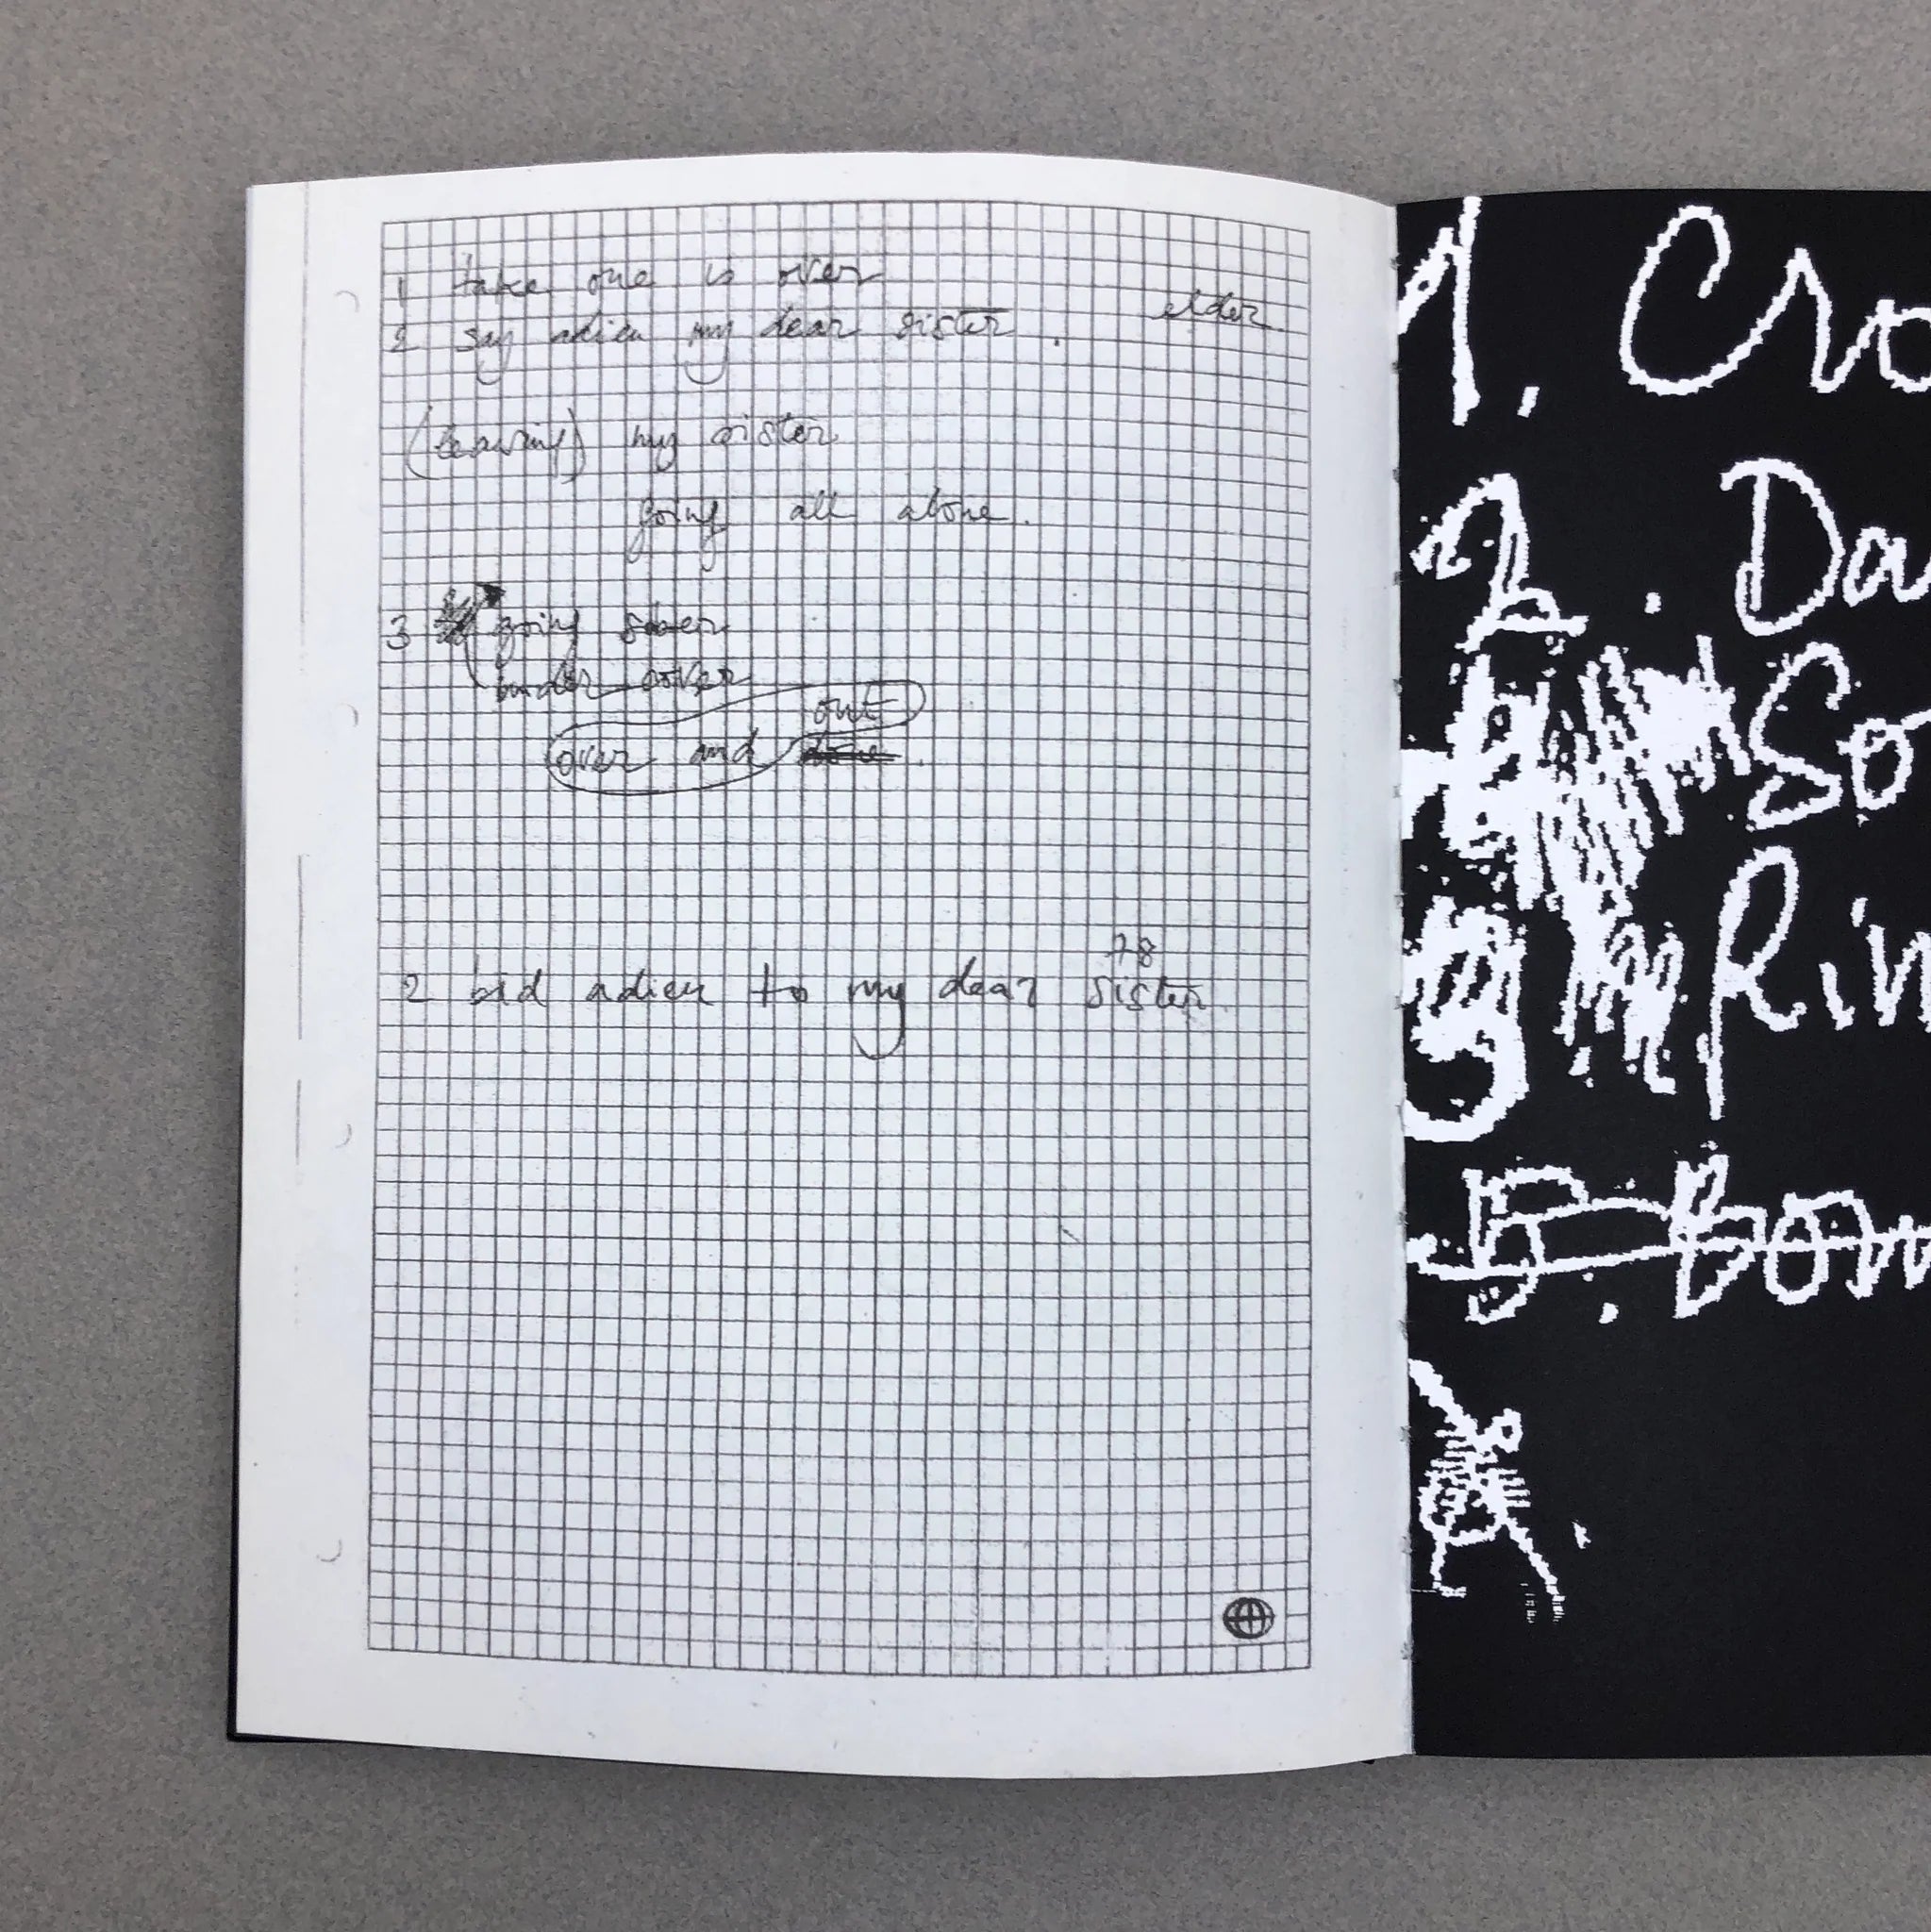 1 take one is over
2 say adieu my dear sister. elder
(leaving) my sister
going all alone.
3 going sober
under cover
out
over and done.
78
2 bid adieu to my dear sister.
1. Cro
2. Da
So
Rin
5. Bom